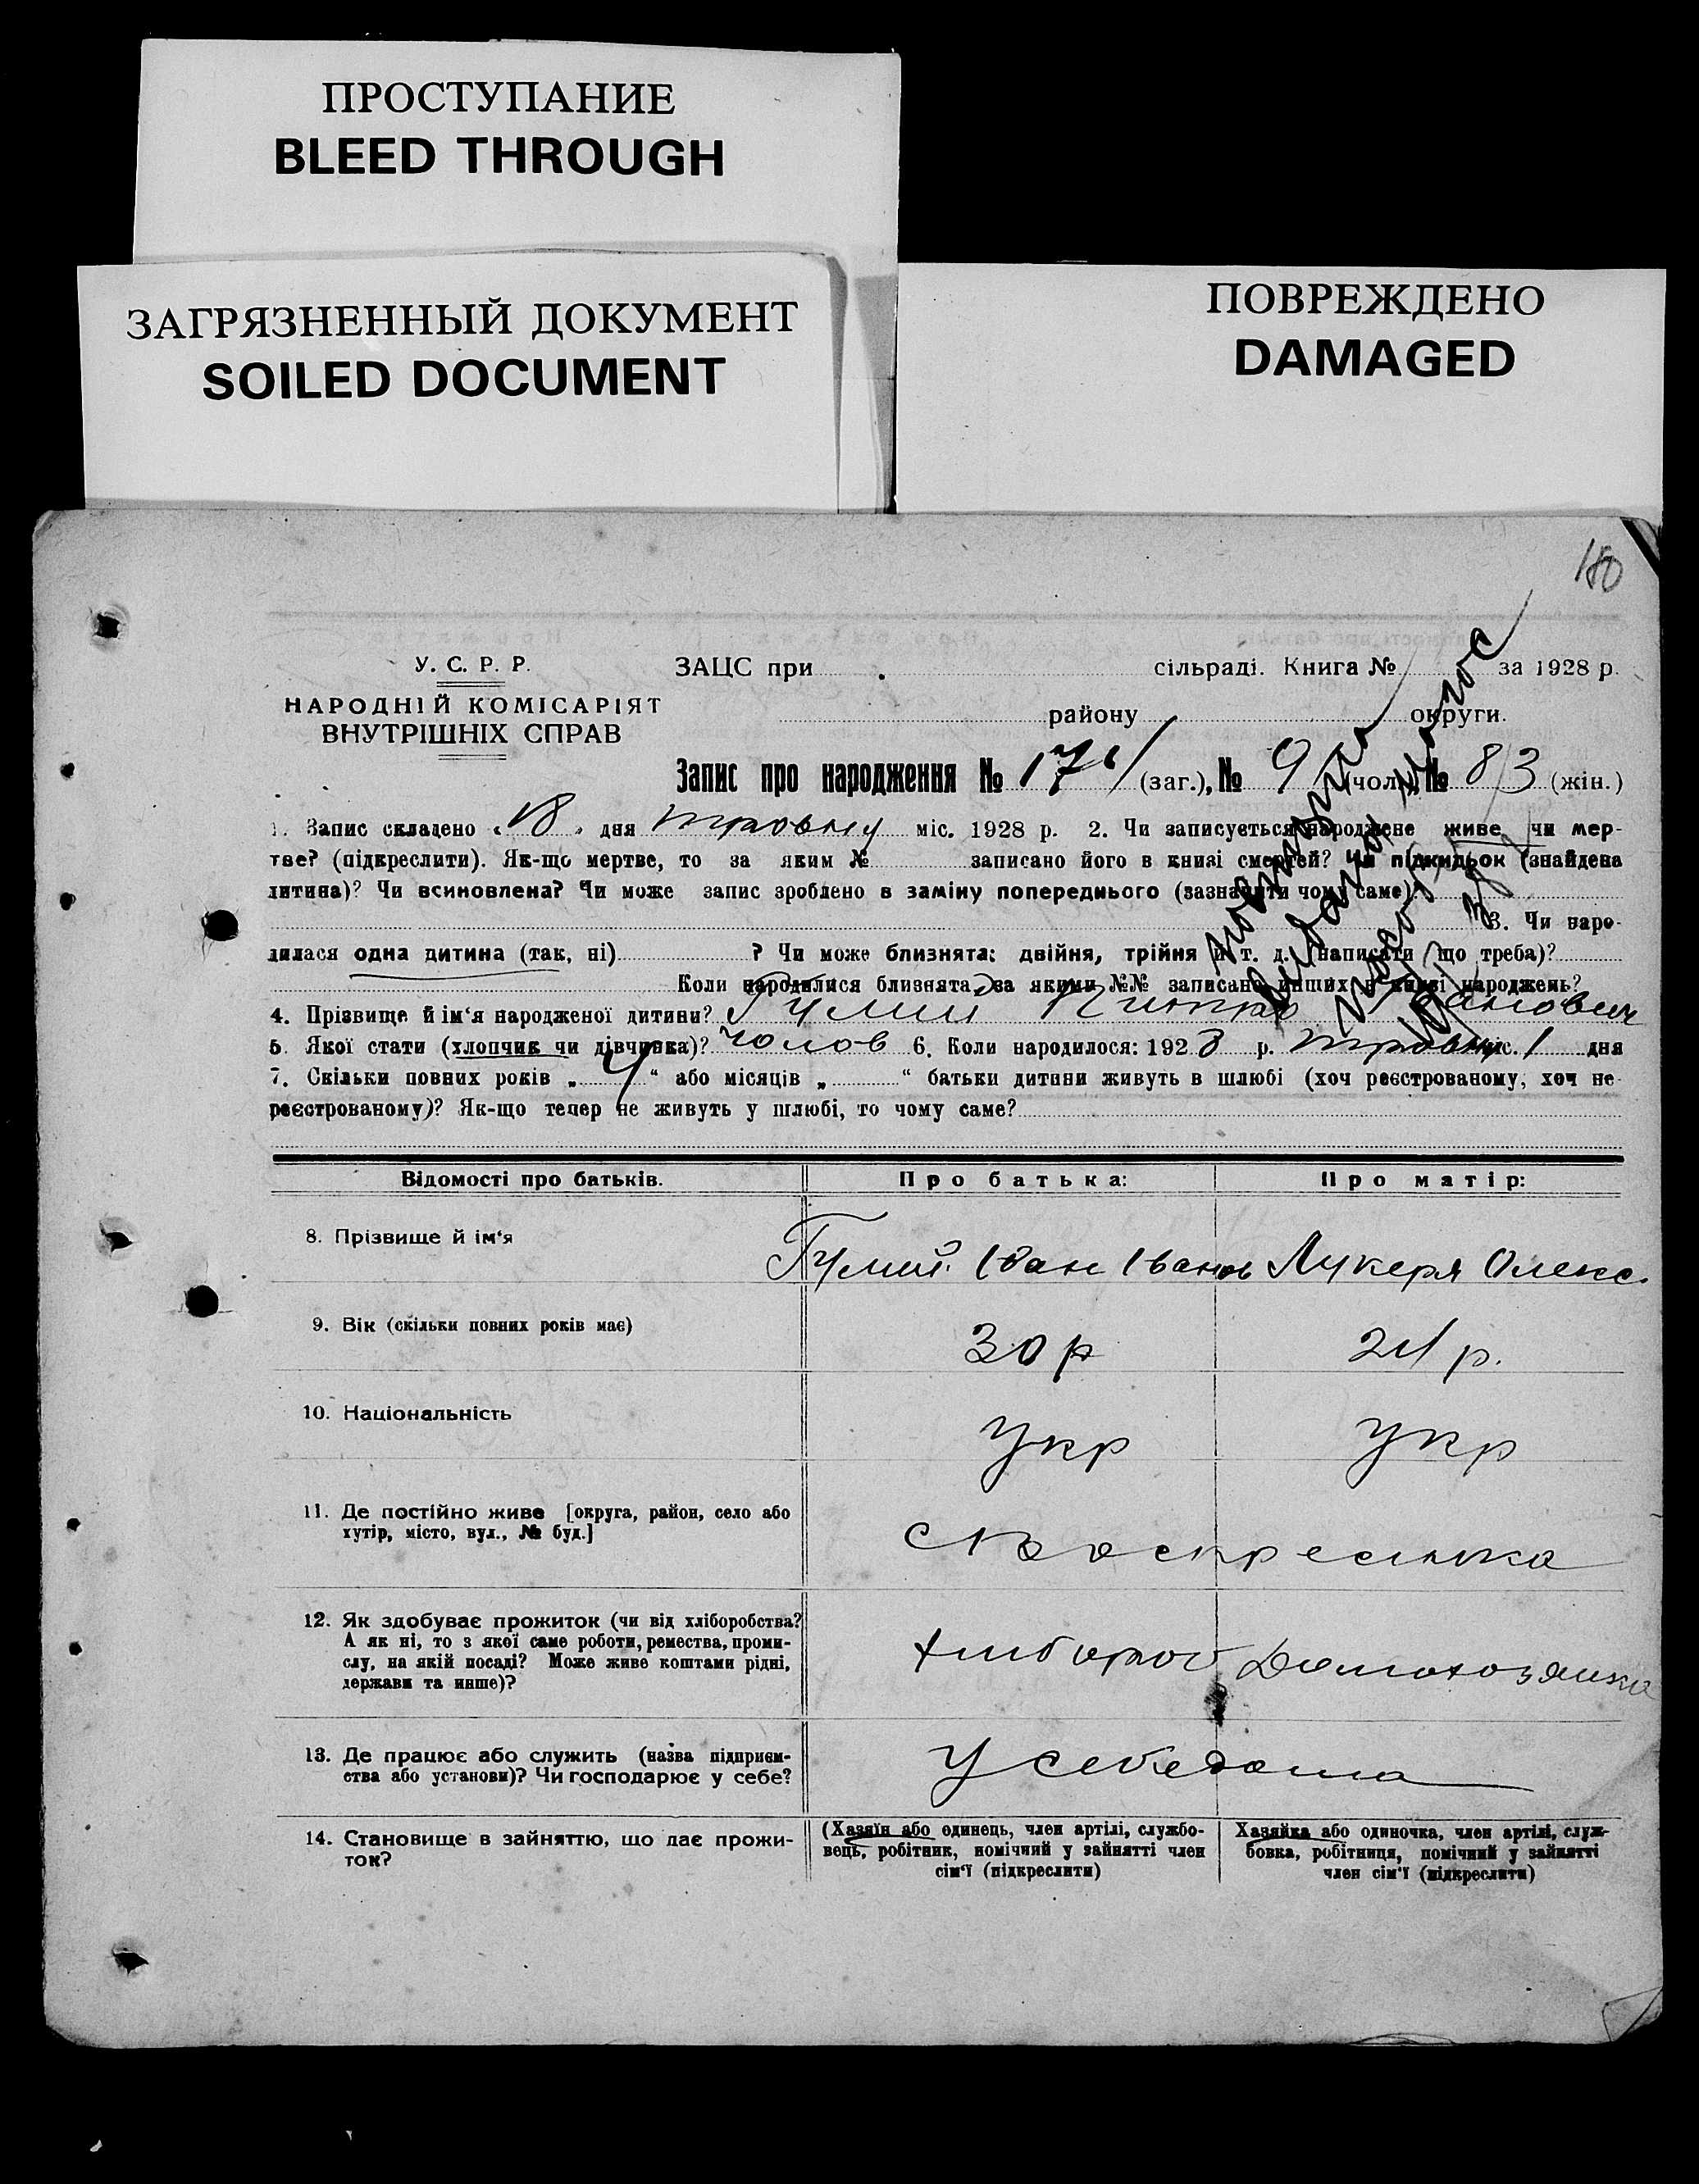 ПРОСТУПАНИЕ
BLEED THROUGH
ЗАГРЯЗНЕННЫЙ ДОКУМЕНТ
SOILED DOCUMENT
ПОВРЕЖДЕНО
DAMAGED
180
У. С. Р. Р.
НАРОДНІЙ КОМІСАРІЯТ
ВНУТРІШНІХ СПРАВ
ЗАЦС при сільраді. Книга № за 1928 р.
району округи.
Запис про народження № 174 (заг.), № 91 (чол.) № 83 (жін.)
1. Запис складено „18“ дня травня міс. 1928 р. 2. Чи записується народжене живе чи мер-
тве? (підкреслити). Як-що мертве, то за яким № записано його в книзі смертей? Чи підкидьок (знайдена
дитина)? Чи всиновлена? Чи може запис зроблено в заміну попереднього (зазначити чому саме)?
3. Чи наро-
дилася одна дитина (так, ні) ? Чи може близнята: двійня, трійня й т. д. (написати що треба)?
Коли народилися близнята, за якими №№ записано инших в книзі народжень?
4. Прізвище й ім‘я народженої дитини? Гумий Іванович
5. Якої стати (хлопчик чи дівчинка)? Чолов 6. Коли народилося: 1928 р. травня міс. 1 дня
7. Скільки повних років „ 4 “ або місяців „ “ батьки дитини живуть в шлюбі (хоч реєстрованому, хоч не-
реєстрованому)? Як-що тепер не живуть у шлюбі, то чому саме?
Відомості про батьків. Про батька: Про матір:
8. Прізвище й ім‘я Гумий Іван Іванов Лукеря Олекс.
9. Вік (скільки повних років має) 30 р 24 р.
10. Національність Укр Укр
11. Де постійно живе [округа, район, село або
хутір, місто, вул., № буд.]
12. Як здобуває прожиток (чи від хліборобства?
А як ні, то з якої саме роботи, ремества, проми-
слу, на якій посаді? Може живе коштами рідні,
держави та инше)?
хлібороб Домохозяйка
13. Де працює або служить (назва підприєм-
ства або установи)? Чи господарює у себе?
У себе дома
14. Становище в зайняттю, що дає прожи-
ток?
(Хазяїн або одинець, член артілі, службо-
вець, робітник, помічний у зайнятті член
сім‘ї (підкреслити)
Хазяйка або одиночка, член артілі, служ-
бовка, робітниця, помічний у зайнятті
член сім‘ї (підкреслити)